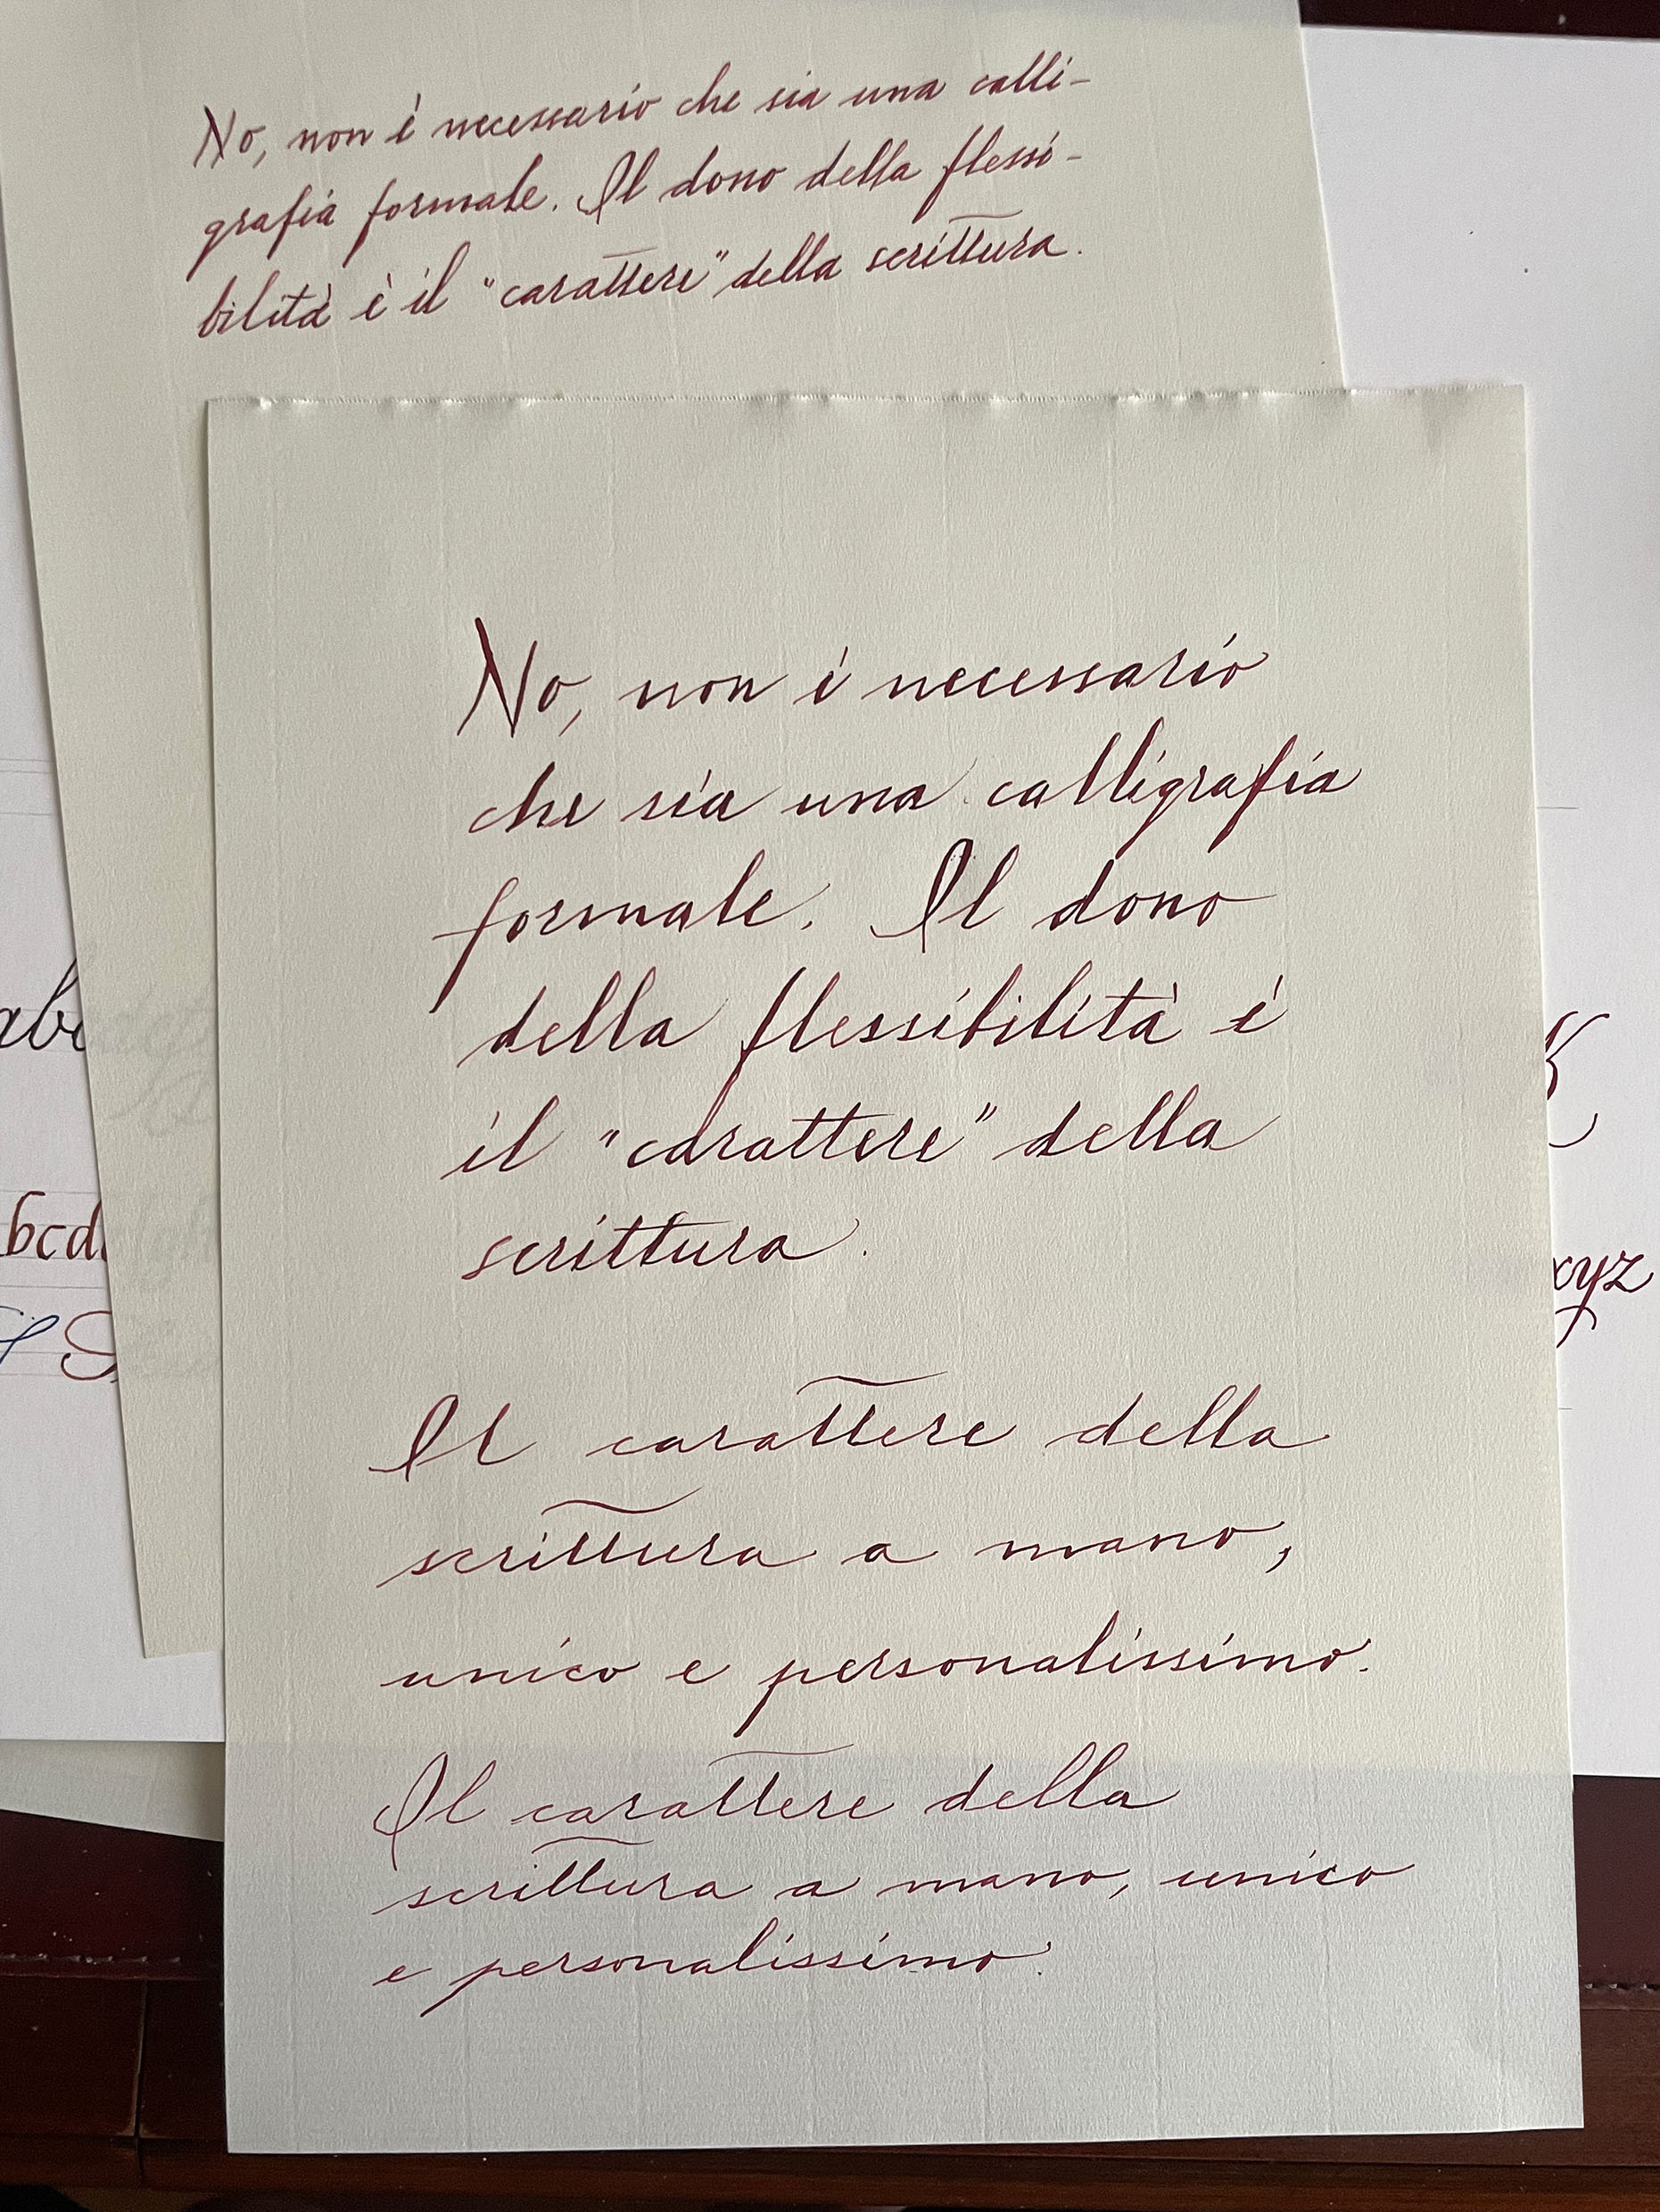 No, non è necessario che sia una calli-
grafia formale. Il dono della flessi-
bilità è il "carattere" della scrittura.
No, non è necessario
che sia una calligrafia
formale. Il dono
della flessibilità è
il "carattere" della
scrittura.
Il carattere della
scrittura a mano,
unico e personalissimo.
Il carattere della
scrittura a mano, unico
e personalissimo.
abc
K
bcd
xyz